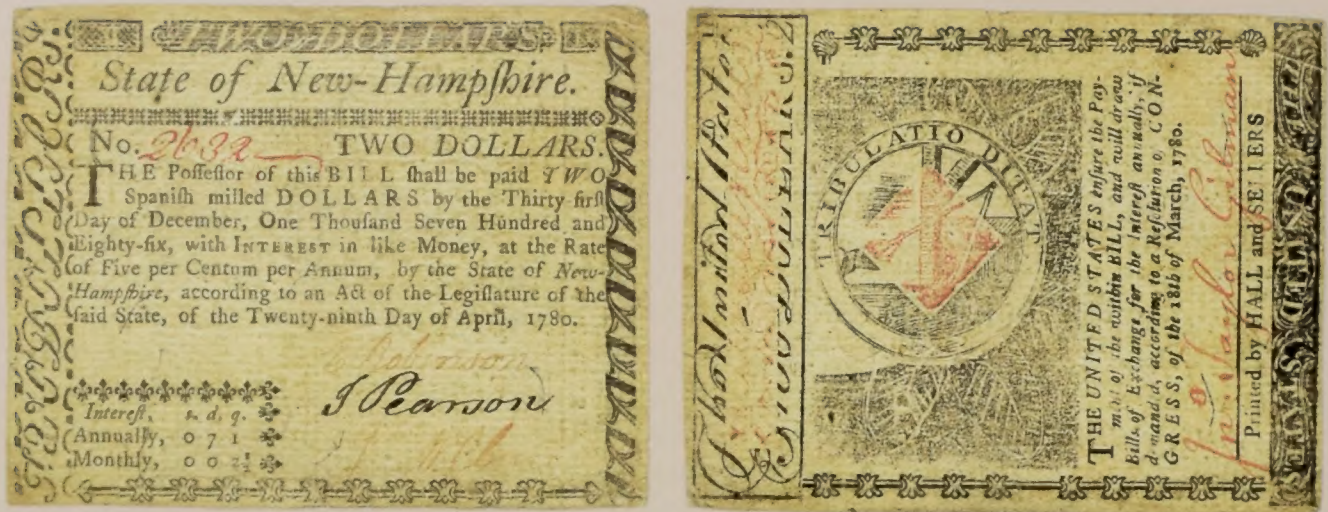 TWO DOLLARS
State of New-Hampſhire.
No. 2632 TWO DOLLARS.
THE Poſſeſſor of this BILL ſhall be paid TWO
Spaniſh milled DOLLARS by the Thirty firſt
Day of December, One Thouſand Seven Hundred and
Eighty-ſix, with INTEREST in like Money, at the Rate
of Five per Centum per Annum, by the State of New-
Hampſhire, according to an Act of the Legiſlature of the
ſaid State, of the Twenty-ninth Day of April, 1780.
J Pearson
Intereſt, s. d. q.
Annually, 0 7 1
Monthly, 0 0 2½
TRIBULATIO DITAT
THE UNITED STATES enſure the Pay-
ment of the within BILL, and will draw
Bills of Exchange for the Intereſt annually, if
demanded, according to a Reſolution of CON-
GRESS, of the 18th of March, 1780.
Gilman
Printed by HALL and SELLERS